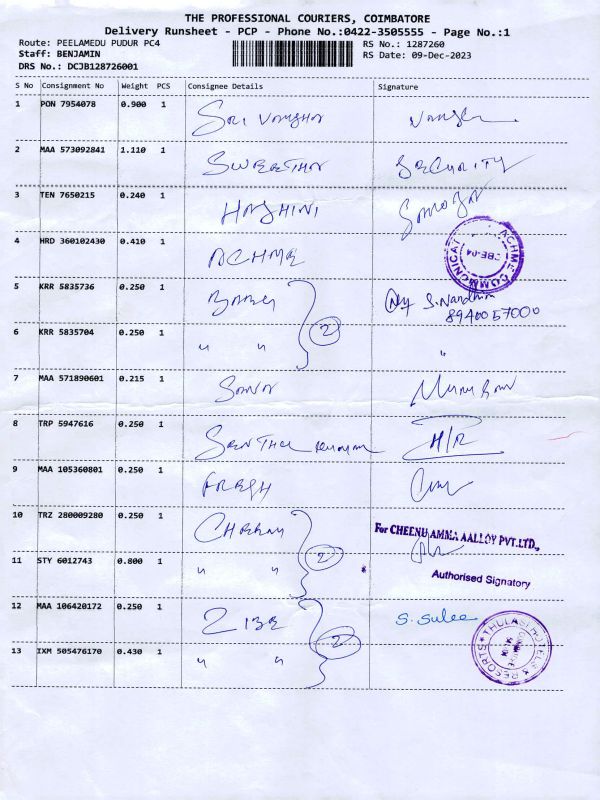 THE PROFESSIONAL COURIERS, COIMBATORE
Delivery Runsheet - PCP - Phone No.:0422-3505555 - Page No.:1
Route: PEELAMEDU PUDUR PC4
RS No.: 1287260
Staff: BENJAMIN
RS Date: 09-Dec-2023
DRS No.: DCJB128726001
S No Consignment No Weight PCS Consignee Details Signature
1 PON 7954078 0.900 1 SRI
2 MAA 573092841 1.110 1 SECURITY
3 TEN 7650215 0.240 1 HARSHINI
4 HRD 360102430 0.410 1 ACHME
ACHME COMMUNICAT CBE-04
5 KRR 5835736 0.250 1 S. Nandhini
8940057000
2
6 KRR 5835704 0.250 1 " " "
7 MAA 571890601 0.215 1
8 TRP 5947616 0.250 1 SENTHIL
9 MAA 105360801 0.250 1 FRESH
10 TRZ 280009280 0.250 1
For CHEENU AMMA AALLOY PVT.LTD.,
2
11 STY 6012743 0.800 1 " " *
Authorised Signatory
12 MAA 106420172 0.250 1 S. Sulee
2
13 IXM 505476170 0.430 1 " "
THULASI HOTELS & RESORTS